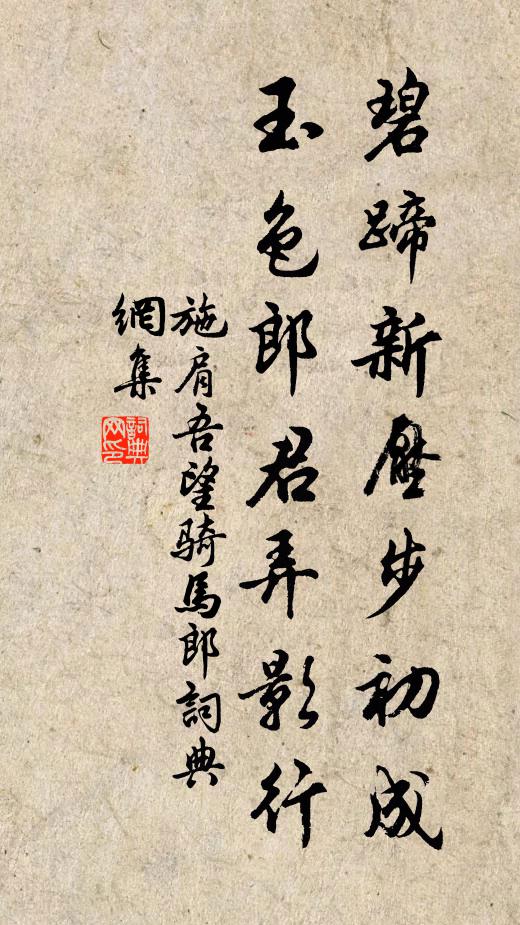 碧蹄新壓步初成
玉色郎君弄影行
施肩吾望騎馬郎詞典
網集
詞典
网印